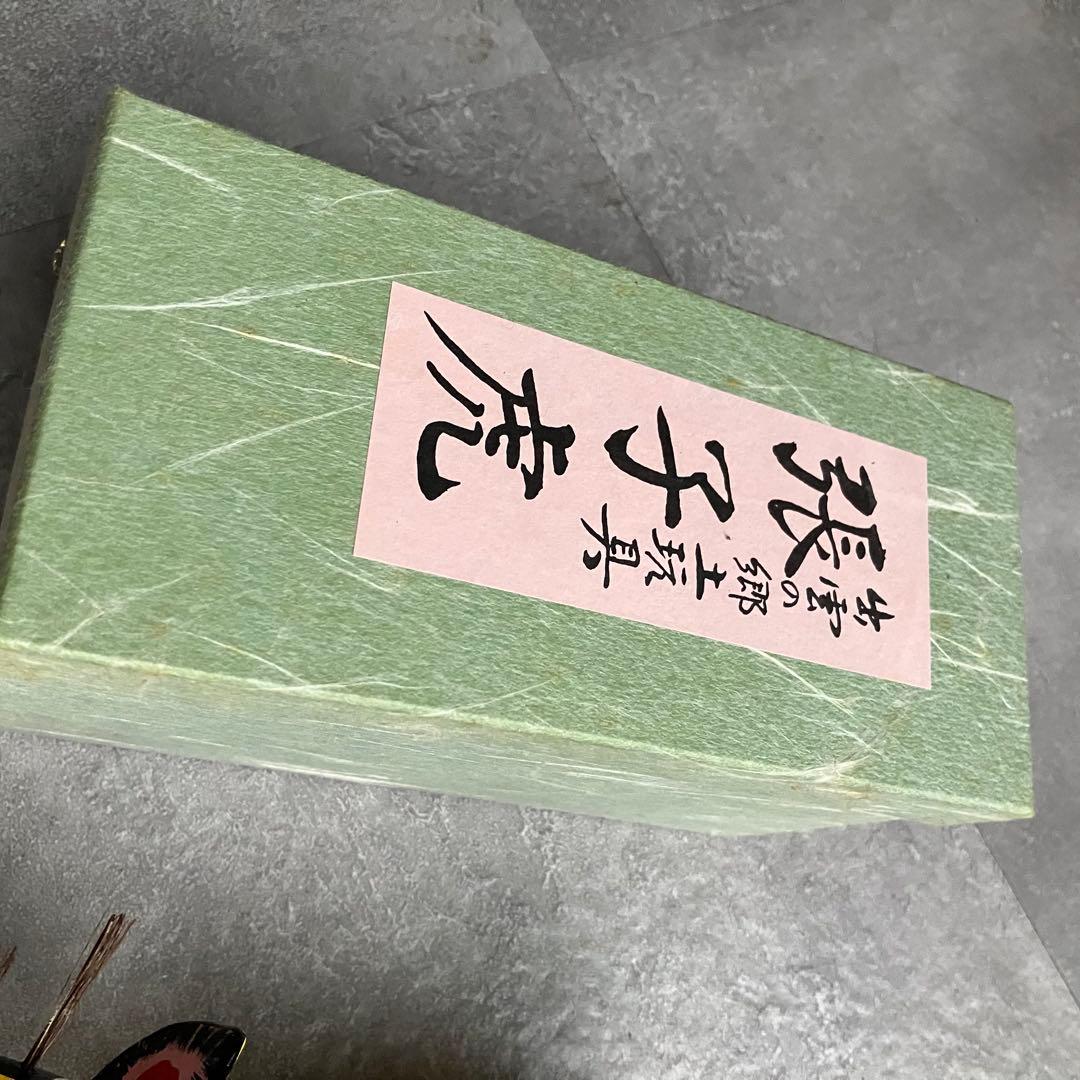 出雲の郷土玩具
張子虎